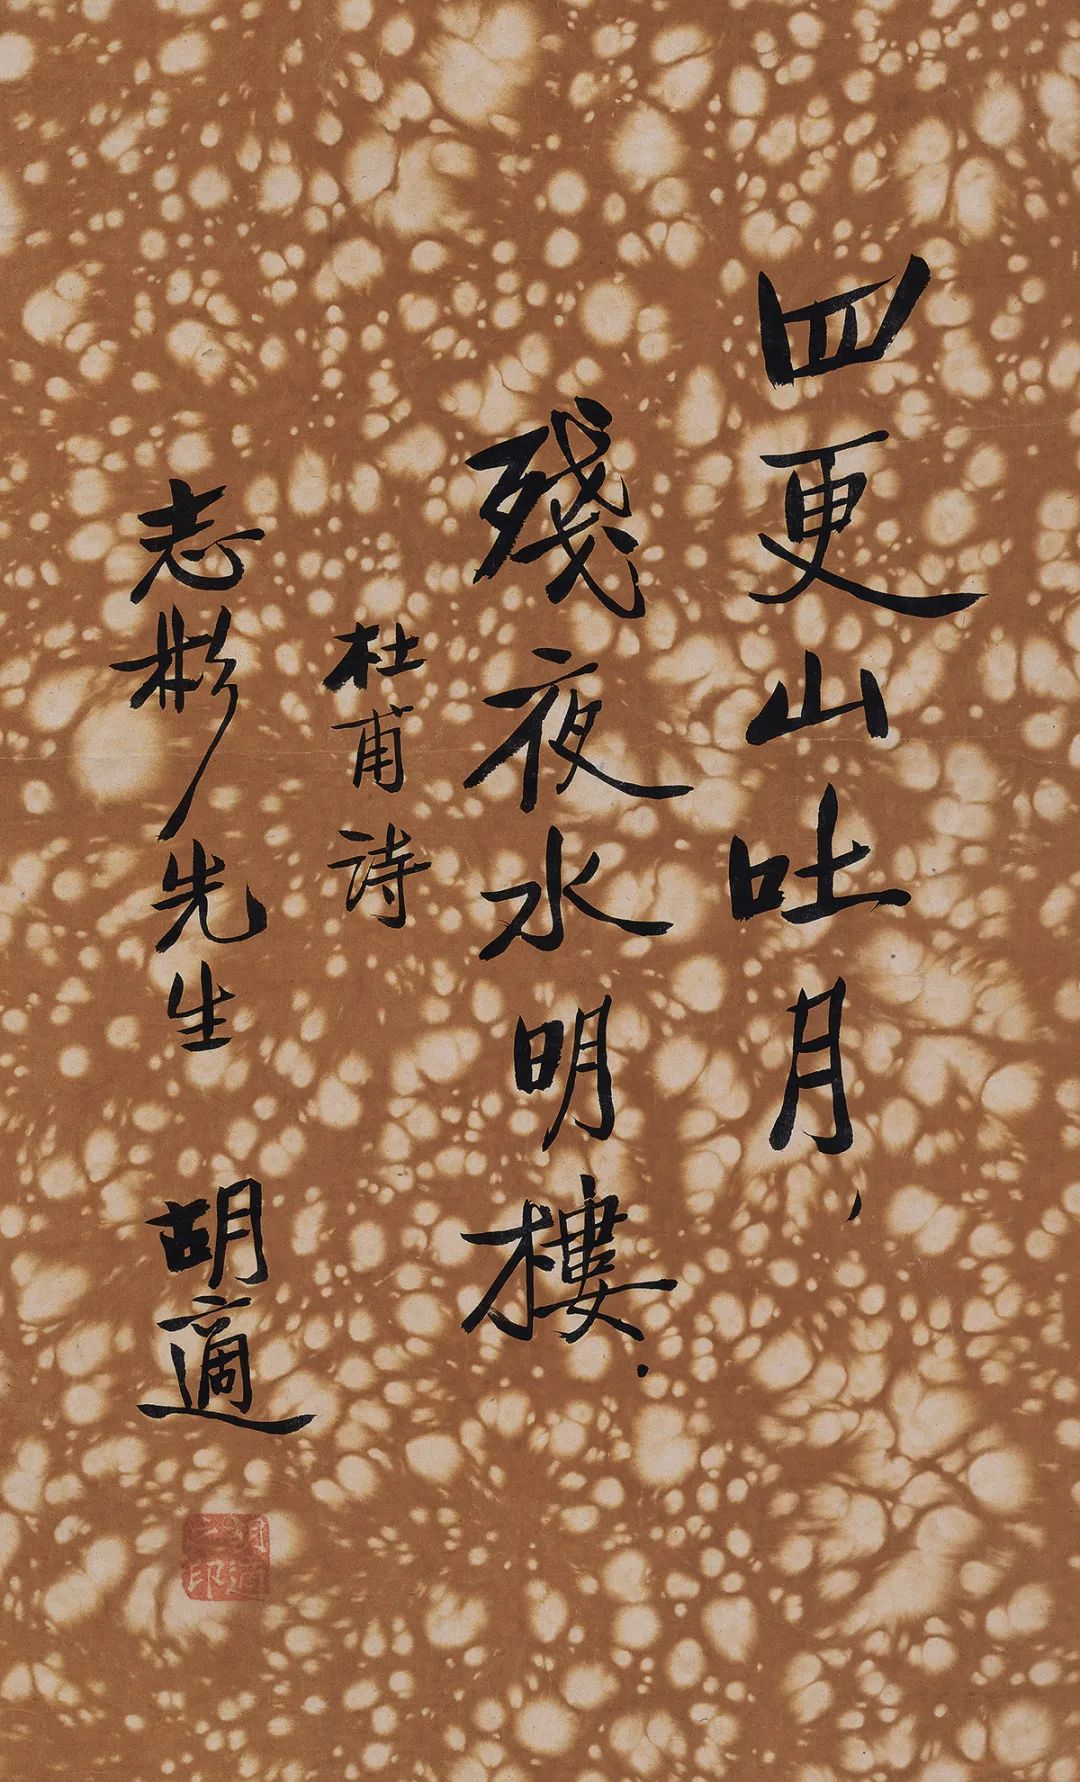 四更山吐月，
殘夜水明樓．
杜甫詩
志彬先生　胡適
胡適之印